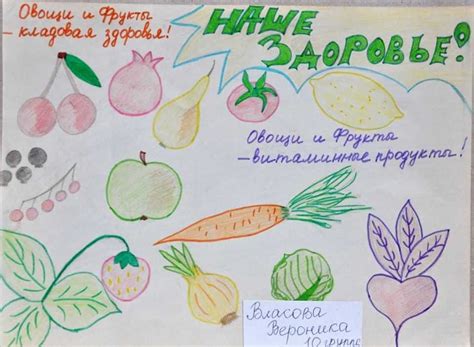 Овощи и Фрукты
– кладовая здоровья!
НАШЕ
ЗДОРОВЬЕ!
Овощи и Фрукты
– витаминные продукты!
Власова
Вероника
10 группа